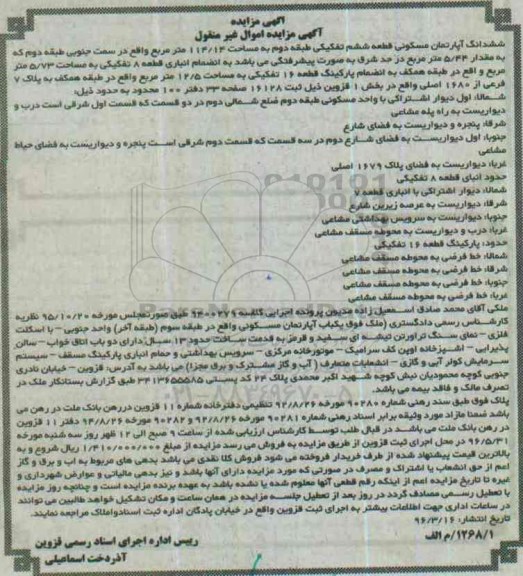 آگهی مزایده
آگهی مزایده اموال غیر منقول
ششدانگ آپارتمان مسکونی قطعه ششم تفکیکی طبقه دوم به مساحت ۱۱۴/۱۴ متر مربع واقع در سمت جنوبی طبقه دوم که
به مقدار ۵/۴۴ متر مربع در حد شرق به صورت پیشرفتگی می باشد به انضمام انباری قطعه ۸ تفکیکی به مساحت ۵/۷۳ متر
مربع و واقع در طبقه همکف به انضمام پارکینگ قطعه ۱۶ تفکیکی به مساحت ۱۲/۵ متر مربع واقع در طبقه همکف به پلاک ۷
فرعی از ۱۶۸۰ اصلی واقع در بخش ۱ قزوین ذیل ثبت ۱۶۱۲۸ صفحه ۳۳ دفتر ۱۰۰ محدود به حدود ذیل:
شمالا: اول دیوار اشتراکی با واحد مسکونی طبقه دوم ضلع شمالی دوم در دو قسمت که قسمت اول شرقی است درب و
دیواریست به راه پله مشاعی
شرقا: پنجره و دیواریست به فضای شارع
جنوبا: اول دیواریست به فضای شارع دوم در سه قسمت که قسمت دوم شرقی است پنجره و دیواریست به فضای حیاط
مشاعی
غربا: دیواریست به فضای پلاک ۱۶۷۹ اصلی
حدود انبای قطعه ۸ تفکیکی
شمالا: دیوار اشتراکی با انباری قطعه ۷
شرقا: دیواریست به عرصه زیرین شارع
جنوبا: دیواریست به سرویس بهداشتی مشاعی
غربا: درب و دیواریست به محوطه مسقف مشاعی
حدود: پارکینگ قطعه ۱۶ تفکیکی
شمالا: خط فرضی به محوطه مسقف مشاعی
شرقا: خط فرضی به محوطه مسقف مشاعی
جنوبا: خط فرضی به محوطه مسقف مشاعی
غربا: خط فرضی به محوطه مسقف مشاعی
ملکی آقای محمد صادق اسمعیل زاده مدیون پرونده اجرایی کلاسه ۹۴۰۰۲۷۹ طبق صورتمجلس مورخه ۹۵/۱۰/۲۰ نظریه
کارشناس رسمی دادگستری (ملک فوق یکباب آپارتمان مسکونی واقع در طبقه سوم (طبقه آخر) واحد جنوبی – با اسکلت
فلزی – نمای سنگ تراورتن تیشه ای سفید و قرمز به قدمت ساخت حدود ۱۳ سال دارای دو باب اتاق خواب – سالن
پذیرایی – آشپزخانه اوپن کف سرامیک – موتورخانه مرکزی – سرویس بهداشتی و حمام انباری پارکینگ مسقف – سیستم
سرمایش کولر آبی و گازی – انشعابات متعارف (آب و گاز مشترک و برق مجزا) می باشد به آدرس: قزوین – خیابان نادری
جنوبی کوچه محمودیان نبش کوچه شهید اکبر محمدی پلاک ۲۴ کد پستی ۳۴۱۳۶۵۵۵۸۵ طبق گزارش بستانکار ملک در
تصرف مالک و فاقد بیمه می باشد.
پلاک فوق طبق سند رهنی شماره ۹۰۲۸۰ مورخه ۹۴/۸/۲۶ تنظیمی دفترخانه شماره ۱۱ قزوین دررهن بانک ملت در رهن می
باشد ضمنا مازاد مورد وثیقه برابر اسناد رهنی شماره ۹۰۲۸۱ مورخه ۹۴/۸/۲۶ و ۹۰۲۸۲ مورخه ۹۴/۸/۲۶ دفتر ۱۱ قزوین
در رهن بانک ملت می باشد در قبال طلب توسط کارشناس ارزیابی شده از ساعت ۹ صبح الی ۱۲ ظهر روز سه شنبه مورخه
۹۶/۵/۳۱ در محل اجرای ثبت قزوین از طریق مزایده به فروش می رسد مزایده از مبلغ ۱/۴۱۰/۰۰۰/۰۰۰ ریال شروع و به
بالاترین قیمت پیشنهاد شده از طرف خریدار فروخته می شود فروش کلا نقدی می باشد بدهی های مربوط به آب و برق و گاز
اعم از حق انشعاب یا اشتراک و مصرف در صورتی که مورد مزایده دارای آنها باشد و نیز بدهی مالیاتی و عوارض شهرداری و
غیره تا تاریخ مزایده اعم از اینکه رقم قطعی آنها معلوم شده یا نشده باشد به عهده برنده مزایده است و چنانچه روز مزایده
با تعطیل رسمی مصادف گردد در روز بعد از تعطیل جلسه مزایده در همان ساعت و مکان تشکیل خواهد طالبین می توانند
در ساعات اداری جهت اطلاعات بیشتر به اجرای ثبت قزوین واقع در خیابان پادگان اداره ثبت اسنادواملاک مراجعه نمایند.
تاریخ انتشار: ۹۶/۳/۱۶
۱۲۶۸/۱/م الف
رییس اداره اجرای اسناد رسمی قزوین
آذردخت اسماعیلی